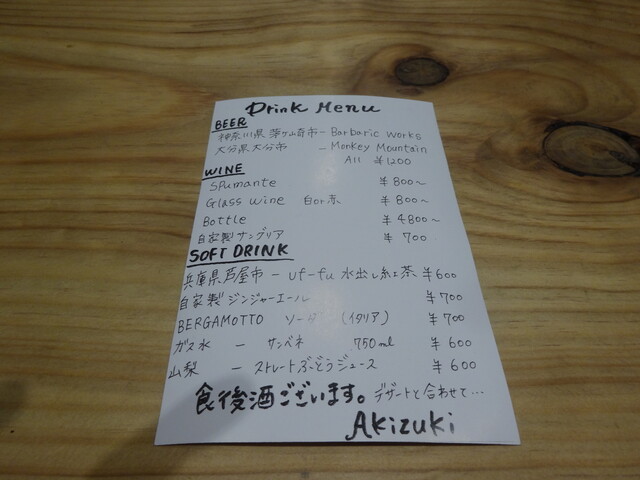 Drink Menu
BEER
神奈川県 茅ヶ崎市 - Barbaric Works
大分県大分市 - Monkey Mountain
All ¥1200
WINE
Spumante ¥800~
Glass wine 白or赤 ¥800~
Bottle ¥4800~
自家製サングリア ¥700
SOFT DRINK
兵庫県芦屋市 - Uf-fu 水出し紅茶 ¥600
自家製ジンジャーエール ¥700
BERGAMOTTO ソーダ (イタリア) ¥700
ガス水 - サンベネ 750ml ¥600
山梨 - ストレートぶどうジュース ¥600
食後酒ございます。デザートと合わせて…
Akizuki